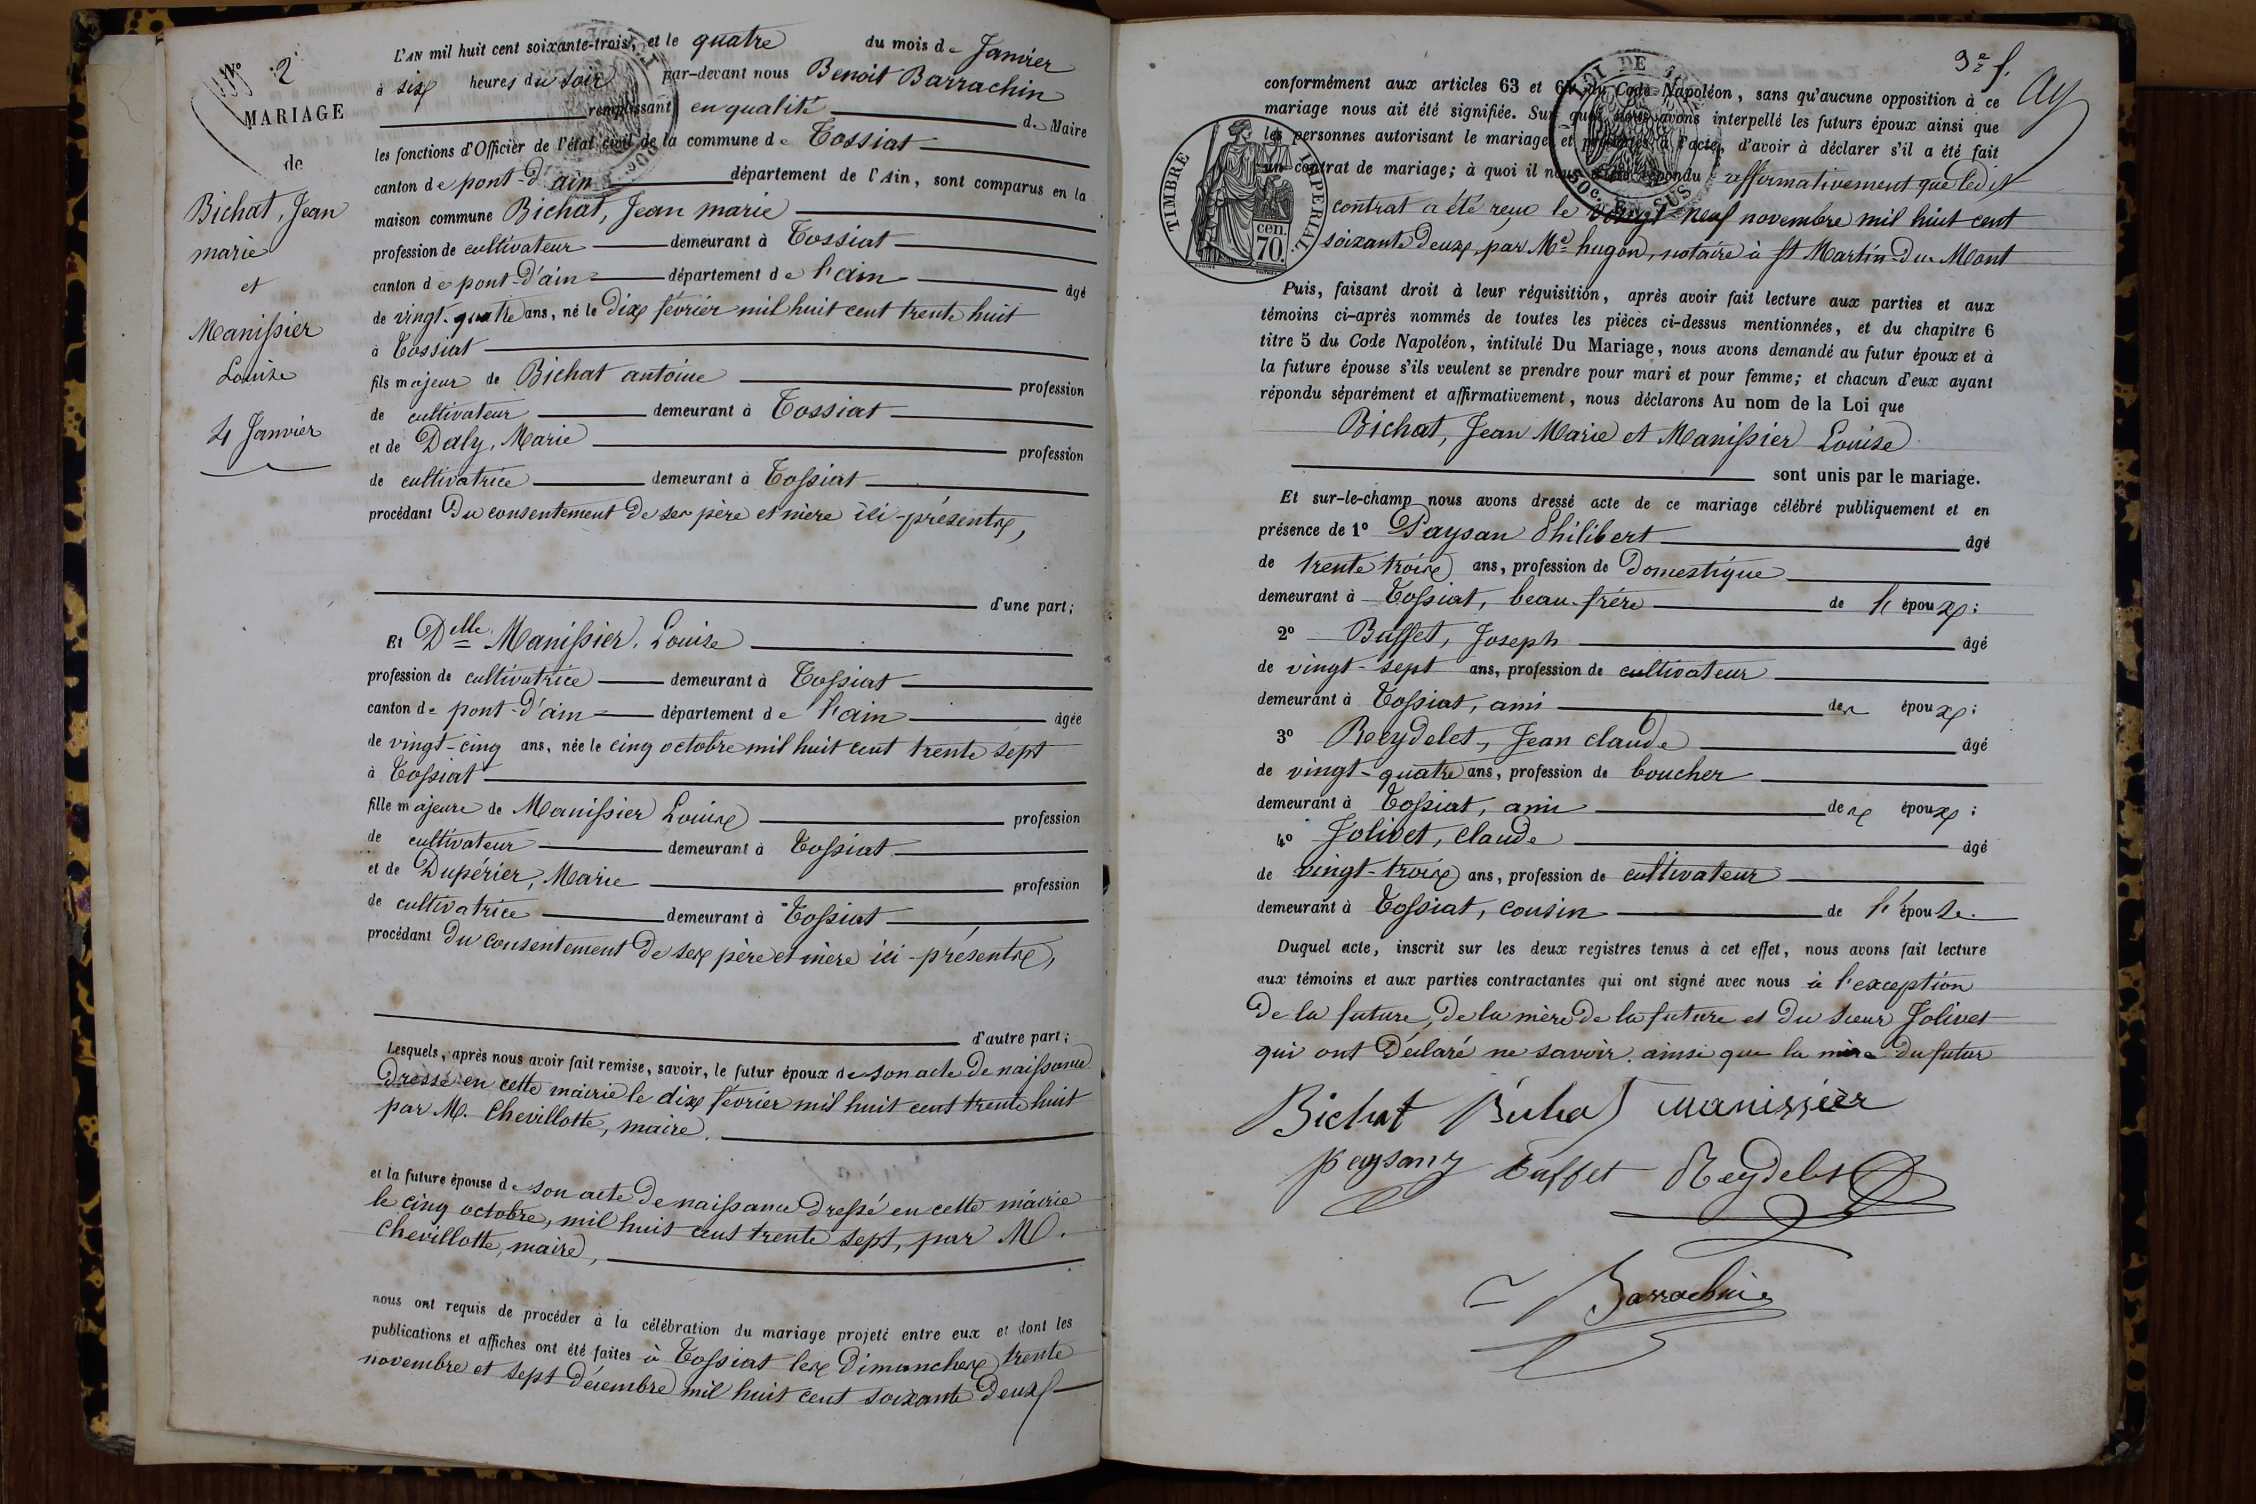 N° 2
MARIAGE
de
Bichat, Jean
marie
et
Manissier
Louise
4 Janvier
L'AN mil huit cent soixante-trois, et le quatre du mois de Janvier
à six heures du soir par-devant nous Benoit Barrachin
remplissant en qualité de Maire
les fonctions d'Officier de l'état civil de la commune de Tossiat
canton de pont-d'ain département de l'Ain, sont comparus en la
maison commune Bichat, Jean marie
profession de cultivateur demeurant à Tossiat
canton de pont-d'ain département de l'ain âgé
de vingt-quatre ans, né le dix février mil huit cent trente huit
à Tossiat
fils majeur de Bichat antoine profession
de cultivateur demeurant à Tossiat
et de Daly, Marie profession
de cultivatrice demeurant à Tossiat
procédant Du consentement de ses père et mère ici-présents,
d'une part;
Et Delle Manissier, Louise
profession de cultivatrice demeurant à Tossiat
canton de pont-d'ain département de l'ain âgée
de vingt-cinq ans, née le cinq octobre mil huit cent trente sept
à Tossiat
fille majeure de Manissier Louis profession
de cultivateur demeurant à Tossiat
et de Dupérier, Marie profession
de cultivatrice demeurant à Tossiat
procédant du consentement de ses père et mère ici-présents,
d'autre part;
Lesquels, après nous avoir fait remise, savoir, le futur époux de son acte de naissance
Dressé en cette mairie le dix février mil huit cent trente huit
par M. Chevillotte, maire.
et la future épouse de son acte de naissance Dressé en cette mairie
le cinq octobre, mil huit cent trente sept, par M.
Chevillotte, maire,
nous ont requis de procéder à la célébration du mariage projeté entre eux et dont les
publications et affiches ont été faites à Tossiat les Dimanches trente
novembre et sept décembre mil huit cent soixante Deux
3e f.
conformément aux articles 63 et 64 du Code Napoléon, sans qu'aucune opposition à ce
mariage nous ait été signifiée. Sur quoi nous avons interpellé les futurs époux ainsi que
les personnes autorisant le mariage et présentes à l'acte, d'avoir à déclarer s'il a été fait
un contrat de mariage; à quoi il nous a été répondu affirmativement que ledit
contrat a été reçu le vingt-neuf novembre mil huit cent
soixante deux, par Me hugon, notaire à St Martin-Du-Mont
TIMBRE IMPERIAL
cen.
70.
Puis, faisant droit à leur réquisition, après avoir fait lecture aux parties et aux
témoins ci-après nommés de toutes les pièces ci-dessus mentionnées, et du chapitre 6
titre 5 du Code Napoléon, intitulé Du Mariage, nous avons demandé au futur époux et à
la future épouse s'ils veulent se prendre pour mari et pour femme; et chacun d'eux ayant
répondu séparément et affirmativement, nous déclarons Au nom de la Loi que
Bichat, Jean Marie et Manissier Louise
sont unis par le mariage.
Et sur-le-champ nous avons dressé acte de ce mariage célébré publiquement et en
présence de 1° Paysan Philibert âgé
de trente trois ans, profession de Domestique
demeurant à Tossiat, beau-frère de l'époux;
2° Buffet, Joseph âgé
de vingt-sept ans, profession de cultivateur
demeurant à Tossiat, ami des époux;
3° Reeydelet, Jean claude âgé
de vingt-quatre ans, profession de boucher
demeurant à Tossiat, ami des époux;
4° Jolivet, claude âgé
de vingt-trois ans, profession de cultivateur
demeurant à Tossiat, cousin de l'épouse.
Duquel acte, inscrit sur les deux registres tenus à cet effet, nous avons fait lecture
aux témoins et aux parties contractantes qui ont signé avec nous à l'exception
De la future, De la mère De la future et du sieur Jolivet
qui ont Déclaré ne savoir. ainsi que la mère du futur
Bichat Bichat Manissier
paysan Buffet Reydelet
Barrachin